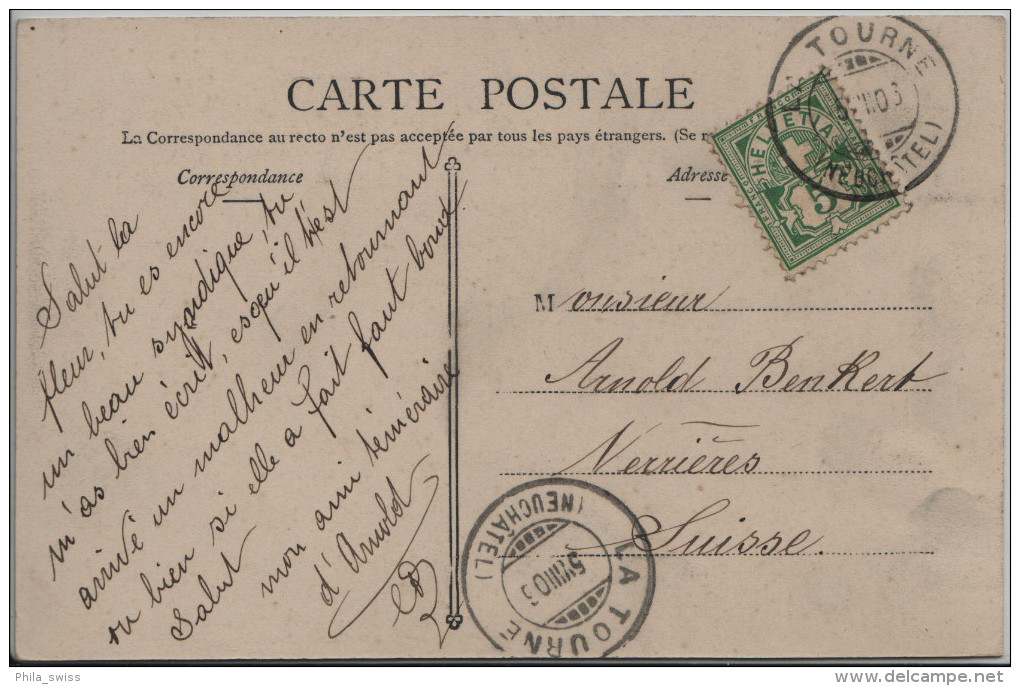 CARTE POSTALE
La Correspondance au recto n'est pas acceptée par tous les pays étrangers. (Se r
Correspondance
Adresse
Salut la
fleur, tu es encore
un beau syndiqué, tu
m'as bien écrit, esqu'il t'est
arrivé un malheur en retournant
ou bien si elle a fait faut bond
Salut mon ami téméraire
d'Arnold
Monsieur
Arnold Benkert
Verrières
Suisse.
FRANCO
HELVETIA
FRANCO
5
LA TOURNE
(NEUCHÂTEL)
LA TOURNE
(NEUCHÂTEL)
Phila_swiss
www.delcampe.net